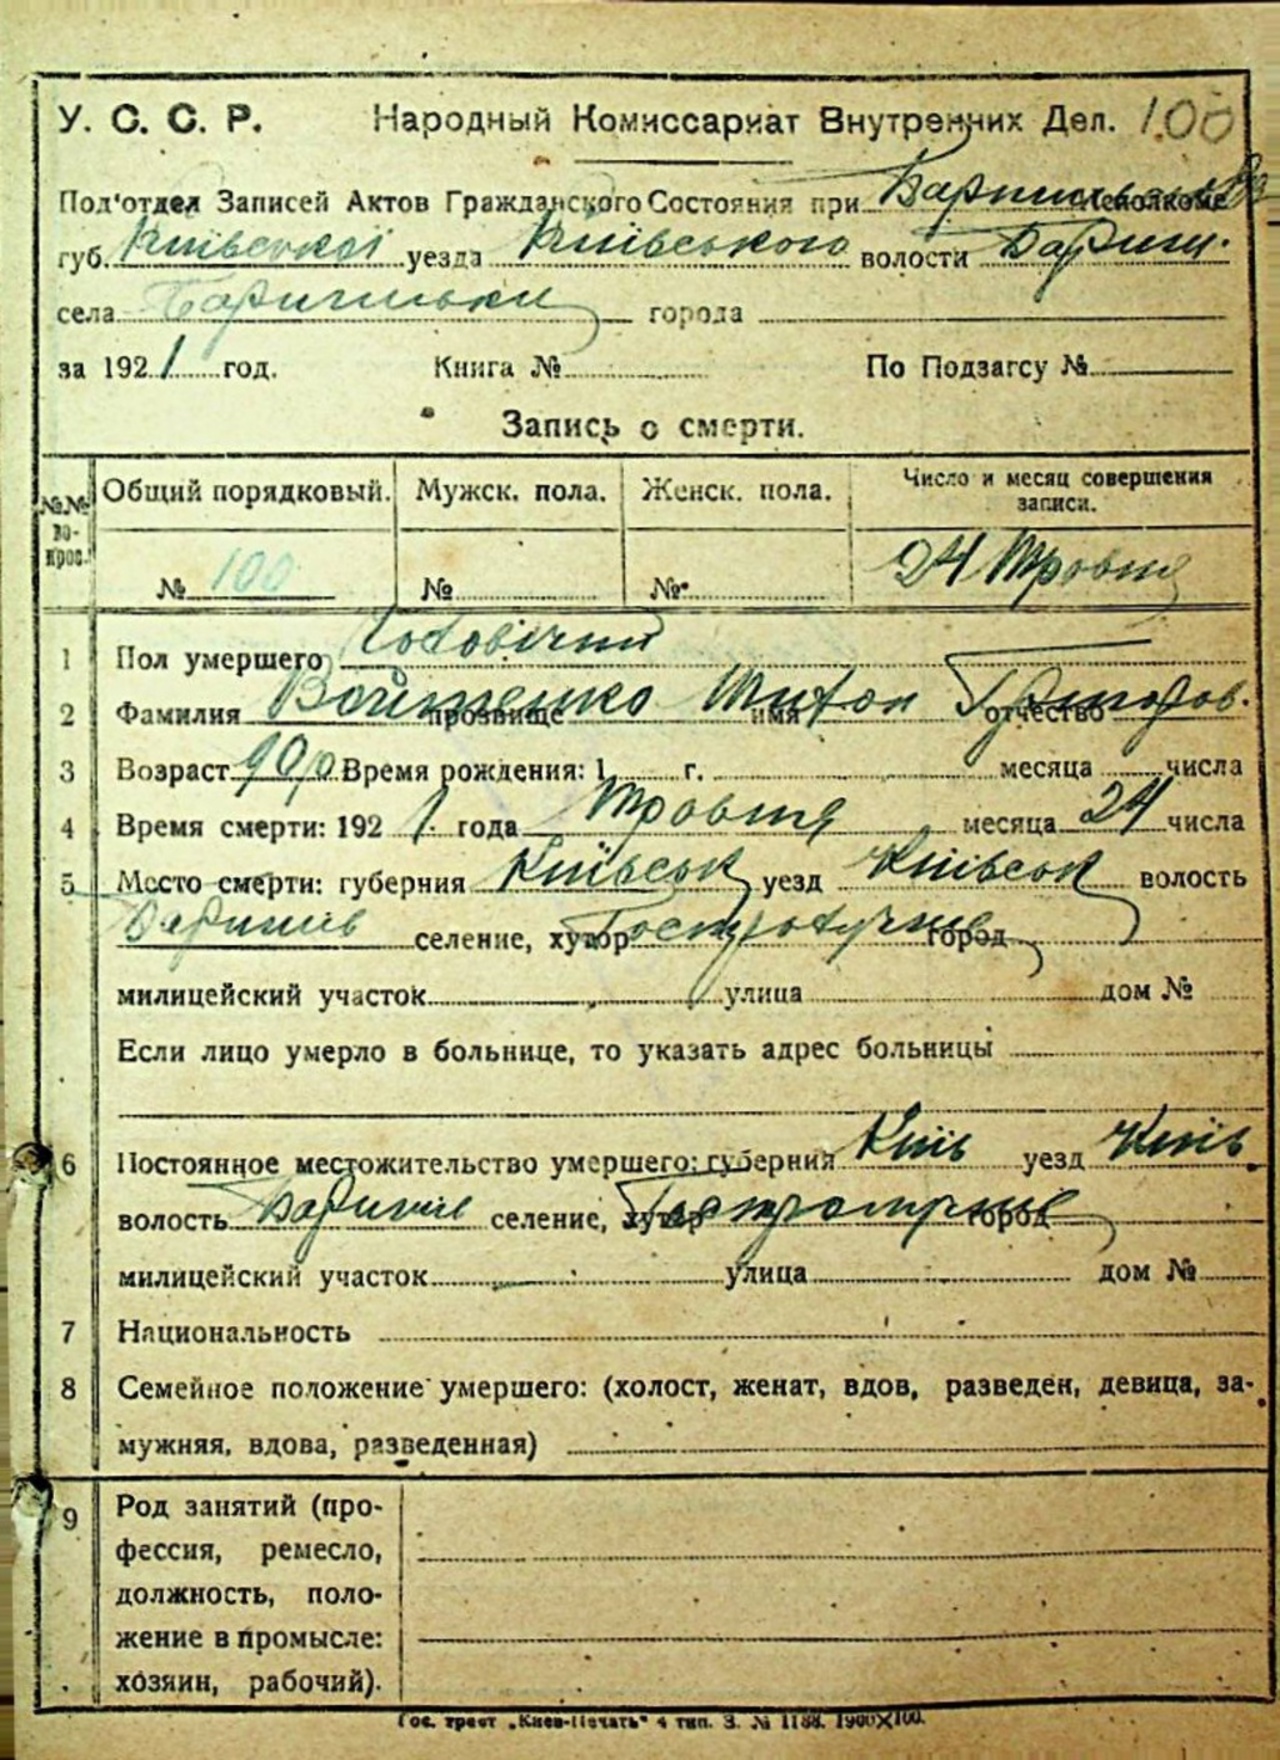 У. С. С. Р. Народный Комиссариат Внутренних Дел. 100
Под'отдел Записей Актов Гражданского Состояния при исполкоме
губ. Київської уезда Київського волости Бариш.
села города
за 1921 год. Книга № По Подзагсу №
Запись о смерти.
№№ вопрос. Общий порядковый. Мужск. пола. Женск. пола. Число и месяц совершения записи.
№ 100 № № 24 Травня
1 Пол умершего Чоловічий
2 Фамилия Войтенко прозвище имя Тихон отчество Григоров.
3 Возраст 90 р Время рождения: 1 г. месяца числа
4 Время смерти: 1921 года Травня месяца 24 числа
5 Место смерти: губерния Київськ уезд Київськ волость
Баришів селение, хутор город
милицейский участок улица дом №
Если лицо умерло в больнице, то указать адрес больницы
6 Постоянное местожительство умершего: губерния Київ уезд Київ
волость Баришів селение, хутор город
милицейский участок улица дом №
7 Национальность
8 Семейное положение умершего: (холост, женат, вдов, разведен, девица, за-
мужняя, вдова, разведенная)
9 Род занятий (про-
фессия, ремесло,
должность, поло-
жение в промысле:
хозяин, рабочий).
Гос. трест „Киев-Печать" 4 тип. З. № 1188. 1900×100.